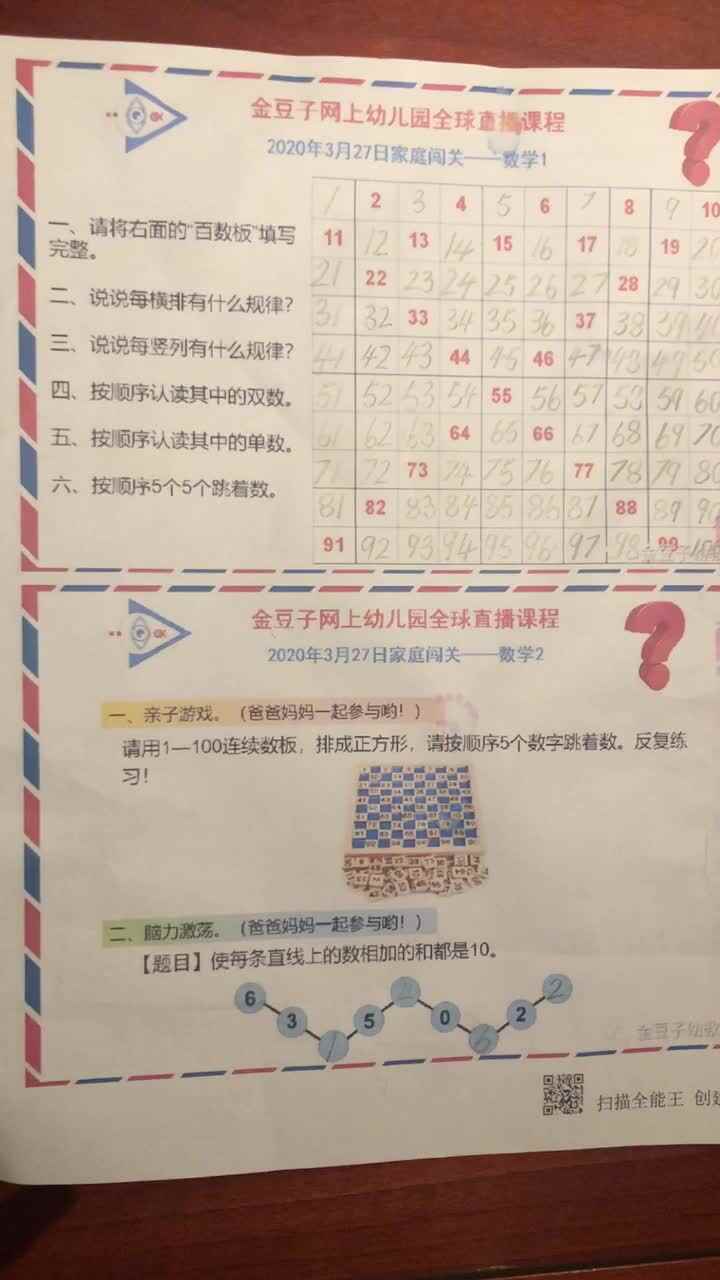 金豆子网上幼儿园全球直播课程
2020年3月27日家庭闯关——数学1
一、请将右面的“百数板”填写
完整。
二、说说每横排有什么规律?
三、说说每竖列有什么规律?
四、按顺序认读其中的双数。
五、按顺序认读其中的单数。
六、按顺序5个5个跳着数。
1 2 3 4 5 6 7 8 9 10
11 12 13 14 15 16 17 18 19 20
21 22 23 24 25 26 27 28 29 30
31 32 33 34 35 36 37 38 39 40
41 42 43 44 45 46 47 48 49 50
51 52 53 54 55 56 57 58 59 60
61 62 63 64 65 66 67 68 69 70
71 72 73 74 75 76 77 78 79 80
81 82 83 84 85 86 87 88 89 90
91 92 93 94 95 96 97 98 99 100
金豆子网上幼儿园全球直播课程
2020年3月27日家庭闯关——数学2
一、亲子游戏。（爸爸妈妈一起参与哟！）
请用1—100连续数板，排成正方形，请按顺序5个数字跳着数。反复练
习！
二、脑力激荡。（爸爸妈妈一起参与哟！）
【题目】使每条直线上的数相加的和都是10。
6 3 1 5 4 0 6 2 2
金豆子幼教
扫描全能王 创建